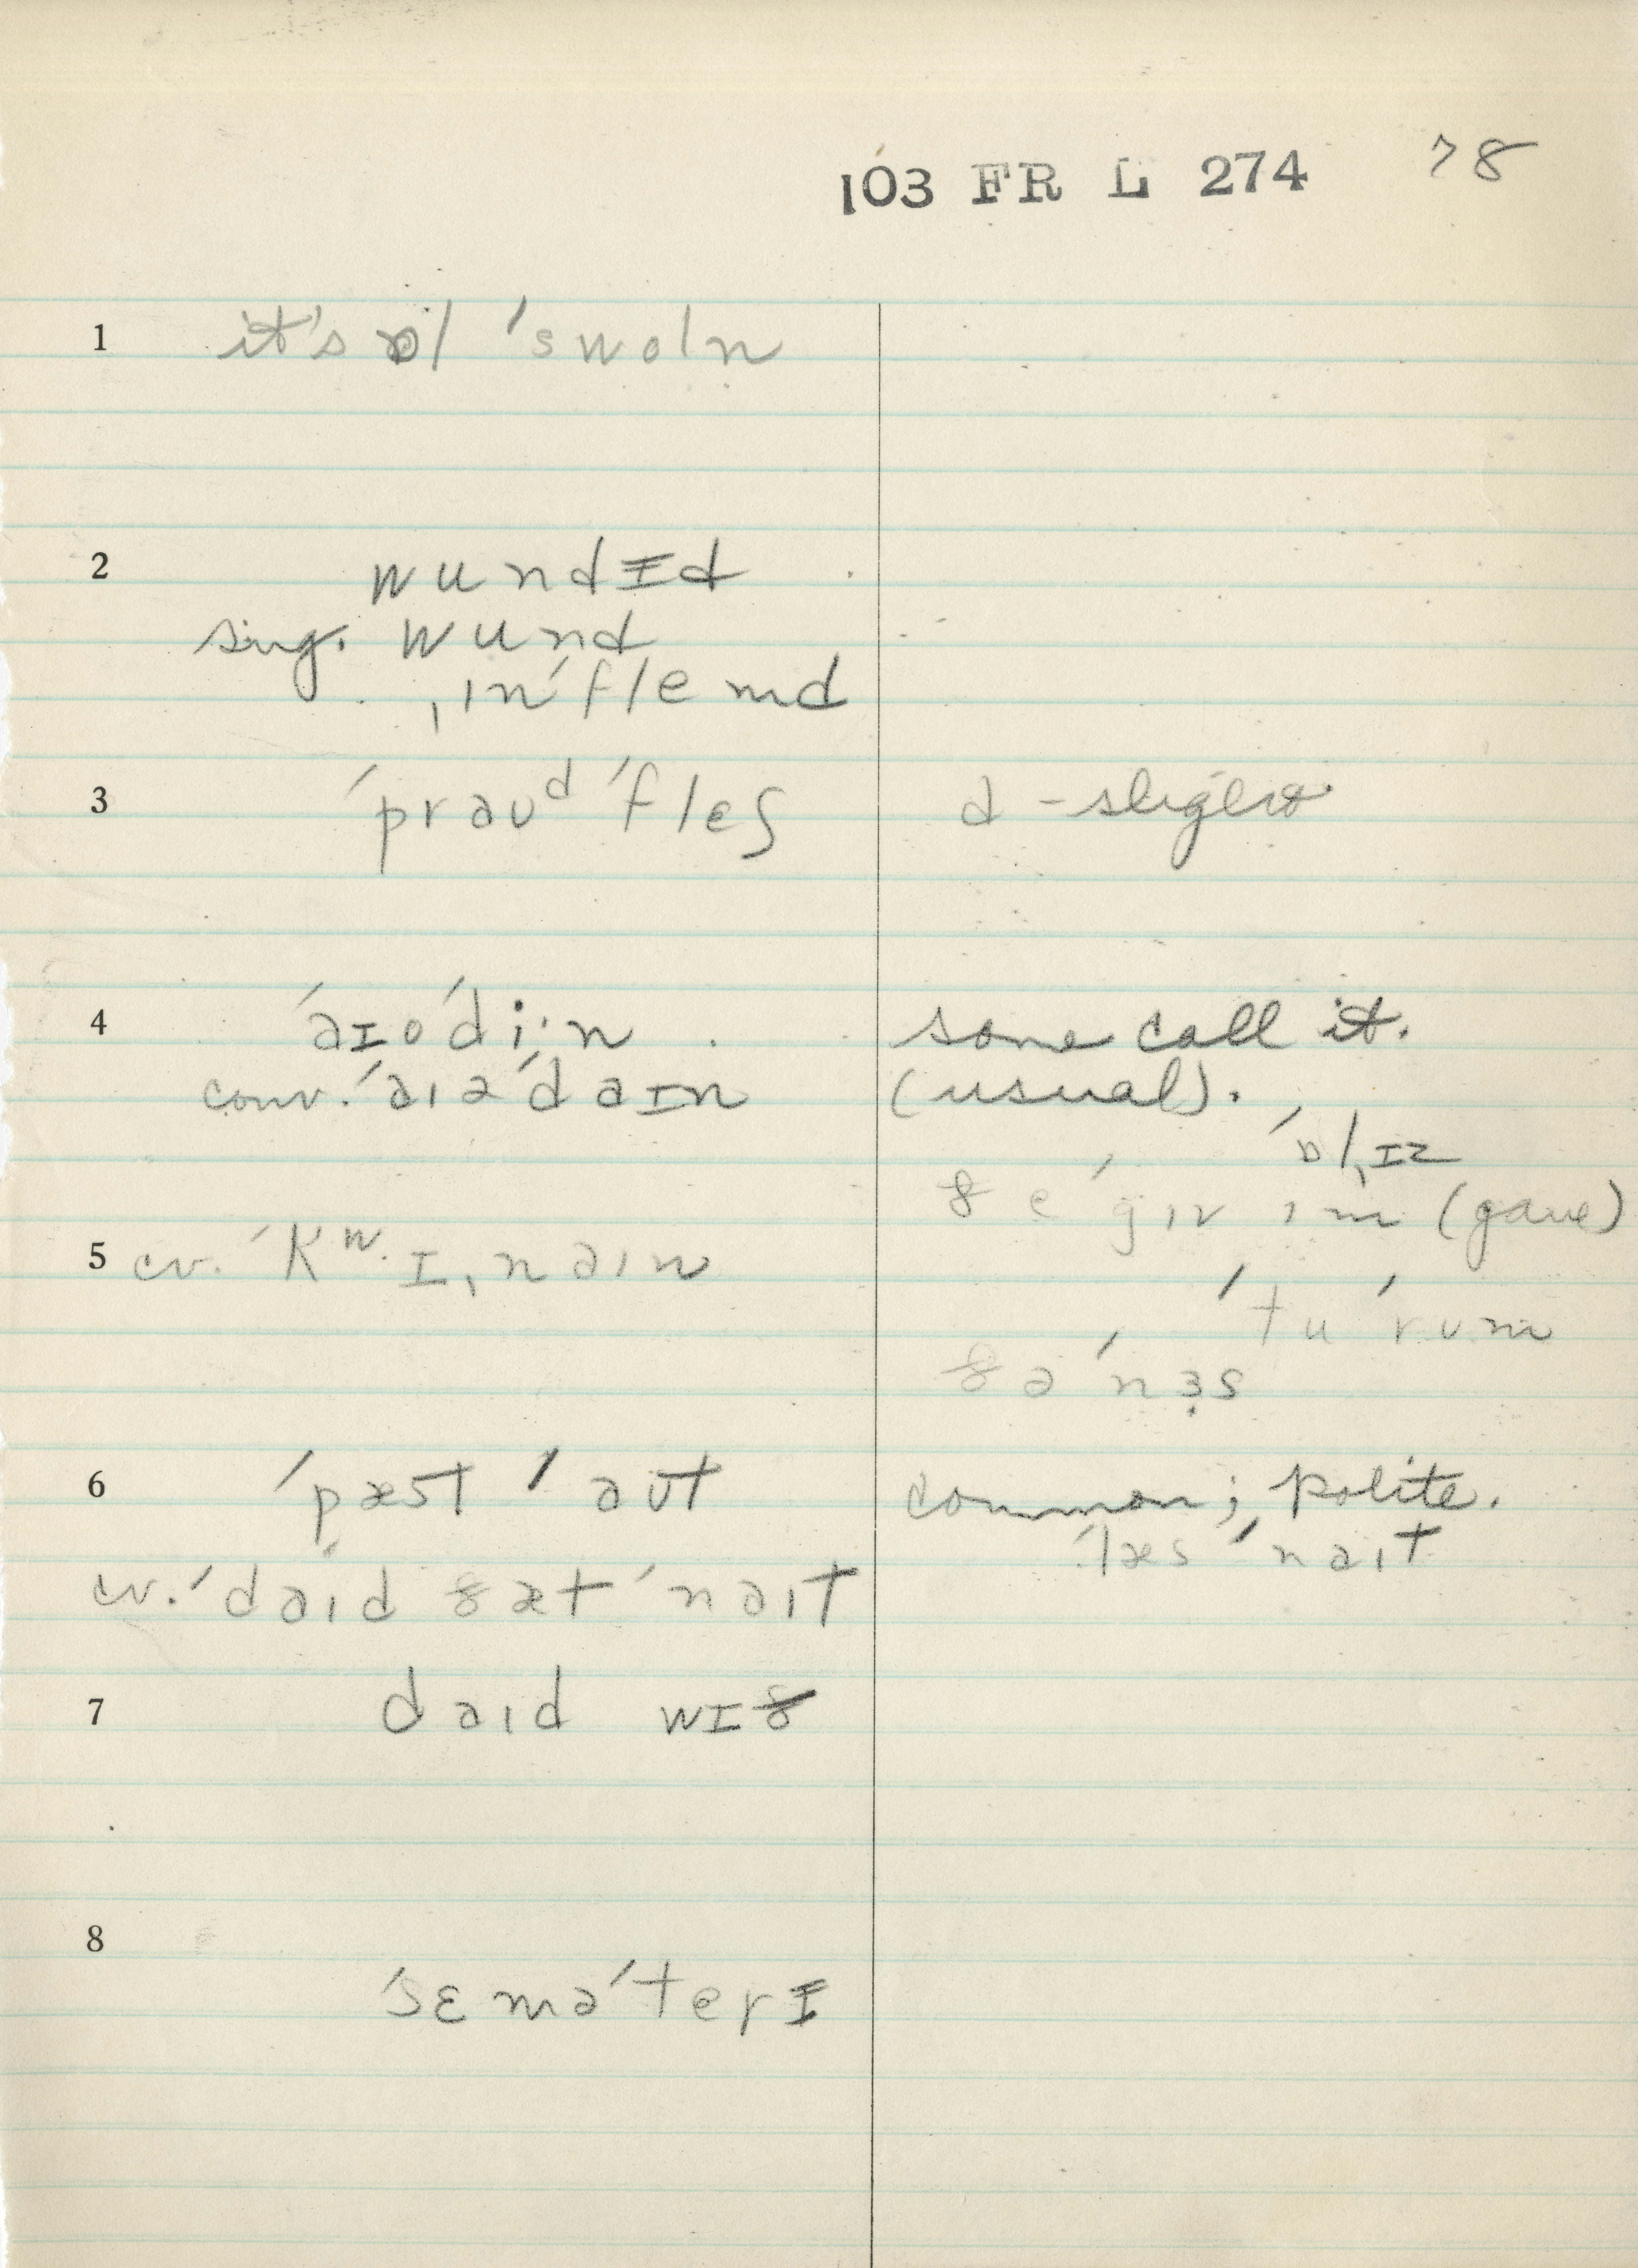 103 FR L 274 78
1 it's ɒl 'swoln
2 wundɪd
sing. wund
ˌɪn'flemd
3 'praʊᵈ 'fleʃ d - slight
4 'aɪo'di·n some call it.
conv. 'aɪə'daɪn (usual).
'ɒlˌɪz
ðe 'gɪv ɪm (gave)
5 cv. 'kʷɪˌnaɪn
'tu 'rʊm
ðə 'nɜs
6 'pæst 'aʊt common; polite.
'læs 'naɪt
cv. 'daɪd ðæt 'naɪt
7 daɪd wɪð
8 'sɛmə'terɪ